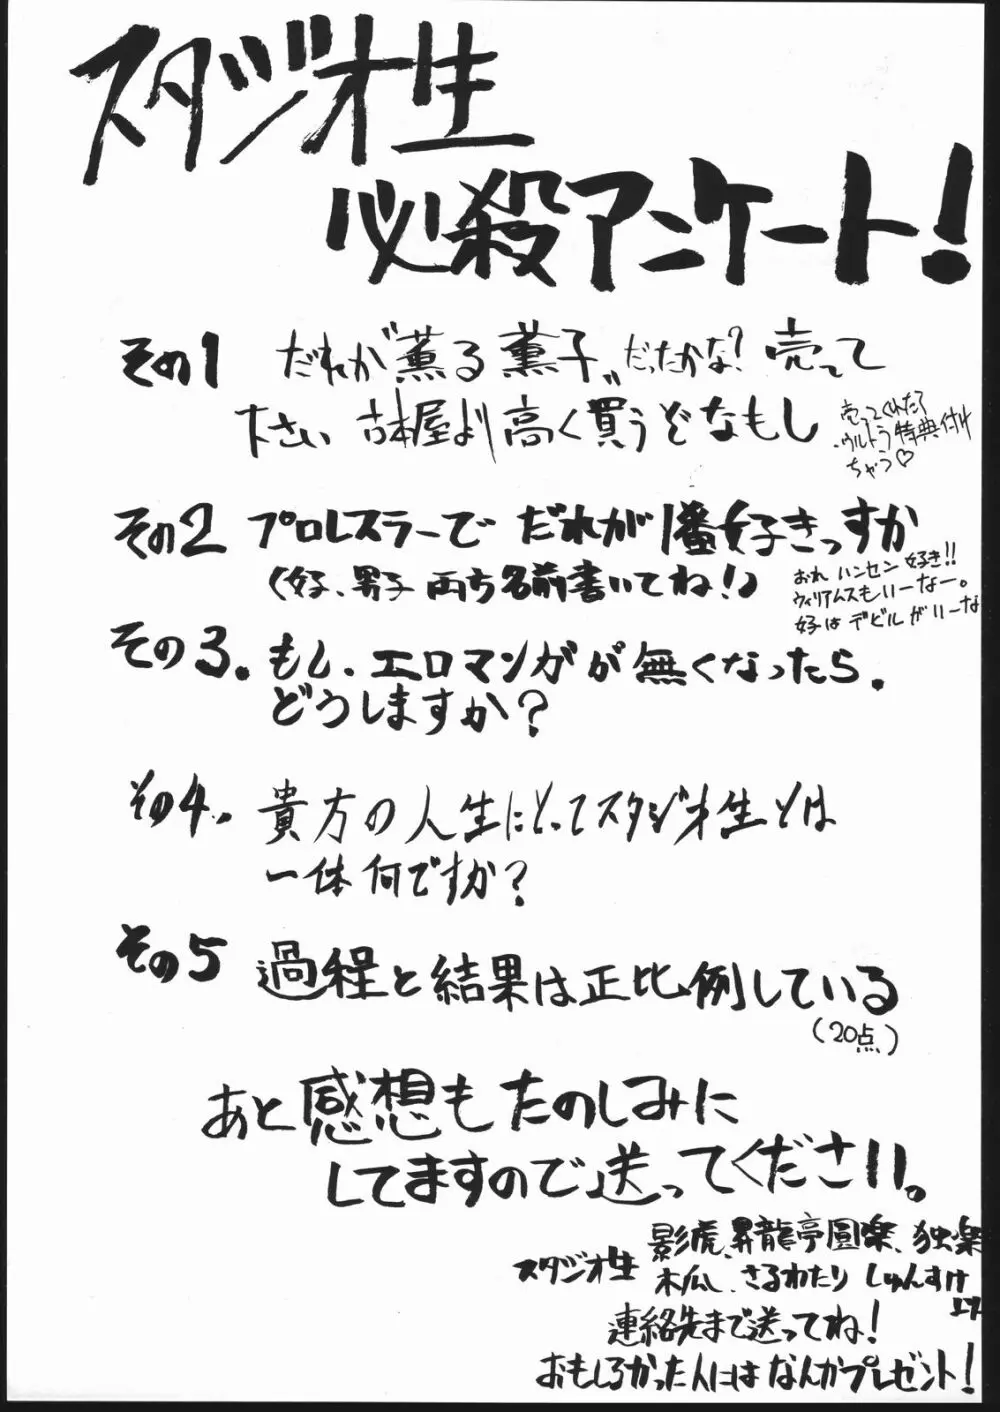 スタジオ生
必殺アンケート!
その1 だれが"薫る薫子"だったかな?売って
下さい 古本屋より高く買うぞなもし
売ってくれた了
ウルトラ特典付け
ちゃう♡
その2 プロレスラーでだれが1番好きっすか
(好、男子両方名前書いてね!)
おれ ハンセン 好き!!
ウィリアムスもいーなー。
好は デビルがいーな
その3. もし、エロマンガが無くなったら、
どうしますか?
その4. 貴方の人生にとってスタジオ生とは
一体何ですか?
その5 過程と結果は正比例している
(20点)
あと感想もたのしみに
してますので送ってください。
スタジオ生 影虎、昇龍亭圓楽、独楽
木瓜、さるわたり しゅんすけ
連絡先まで送ってね!
おもしろかった人にはなんかプレゼント!